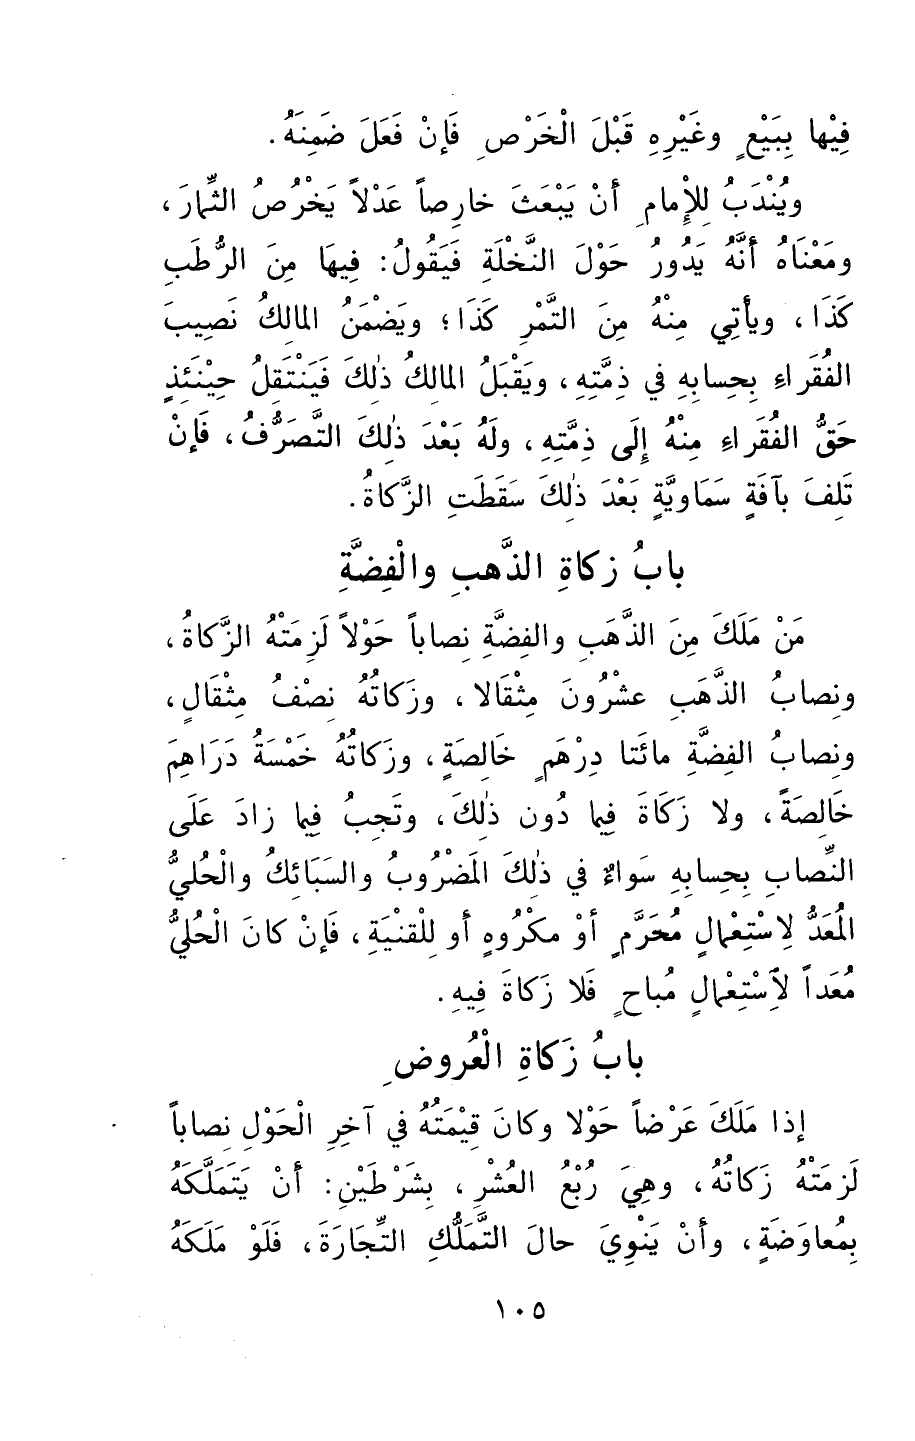 فِيْها بِبَيْعٍ وغَيْرِهِ قَبْلَ الْخَرْصِ فَإنْ فَعَلَ ضَمِنَهُ.
ويُنْدَبُ لِلإِمامِ أنْ يَبْعَثَ خارِصاً عَدْلاً يَخْرُصُ الثِّمارَ،
ومَعْنَاهُ أنَّهُ يَدُورُ حَوْلَ النَّخْلَةِ فَيَقُولُ: فِيهَا مِنَ الرُّطَبِ
كَذَا، ويأْتِي مِنْهُ مِنَ التَّمْرِ كَذَا؛ ويَضْمَنُ المالِكُ نَصِيبَ
الفُقَراءِ بِحِسابِهِ في ذِمَّتِهِ، ويَقْبَلُ المالِكُ ذٰلِكَ فَيَنْتَقِلُ حِيْنَئِذٍ
حَقُّ الفُقَراءِ مِنْهُ إلَى ذِمَّتِهِ، ولَهُ بَعْدَ ذٰلِكَ التَّصَرُّفُ، فَإنْ
تَلِفَ بآفَةٍ سَمَاوِيَّةٍ بَعْدَ ذٰلِكَ سَقَطَتِ الزَّكاةُ.
بابُ زكاةِ الذَّهبِ والْفِضَّةِ
مَنْ مَلَكَ مِنَ الذَّهَبِ والفِضَّةِ نِصاباً حَوْلاً لَزِمَتْهُ الزَّكاةُ،
ونِصابُ الذَّهَبِ عشْرُونَ مِثْقَالا، وزَكاتُهُ نِصْفُ مِثْقَالٍ،
ونِصابُ الفِضَّةِ مائَتا دِرْهَمٍ خَالِصَةٍ، وزكاتُهُ خَمْسَةُ دَرَاهِمَ
خَالِصَةً، ولا زَكَاةَ فِيما دُون ذٰلِكَ، وتَجِبُ فِيما زادَ عَلَى
النِّصابِ بِحِسابِهِ سَواءٌ في ذٰلِكَ المَضْرُوبُ والسَبَائِكُ والْحُلِيُّ
المُعَدُّ لِاسْتِعْمالٍ مُحَرَّمٍ أوْ مكْرُوهٍ أو لِلْقنْيَةِ، فَإنْ كانَ الْحُلِيُّ
مُعَداً لاِسْتِعْمالٍ مُباحٍ فَلا زَكاةَ فِيهِ.
بابُ زَكاةِ الْعُروضِ
إذا مَلَكَ عَرْضاً حَوْلا وكانَ قِيْمَتُهُ في آخِرِ الْحَوْلِ نِصاباً
لَزِمَتْهُ زَكاتُهُ، وهِيَ رُبْعُ العُشْرِ، بِشَرْطَيْنِ: أنْ يَتَمَلَّكَهُ
بِمُعاوَضَةٍ، وأنْ يَنْوِيَ حالَ التَّمَلُّكِ التِّجَارَةَ، فَلَوْ مَلَكَهُ
١٠٥